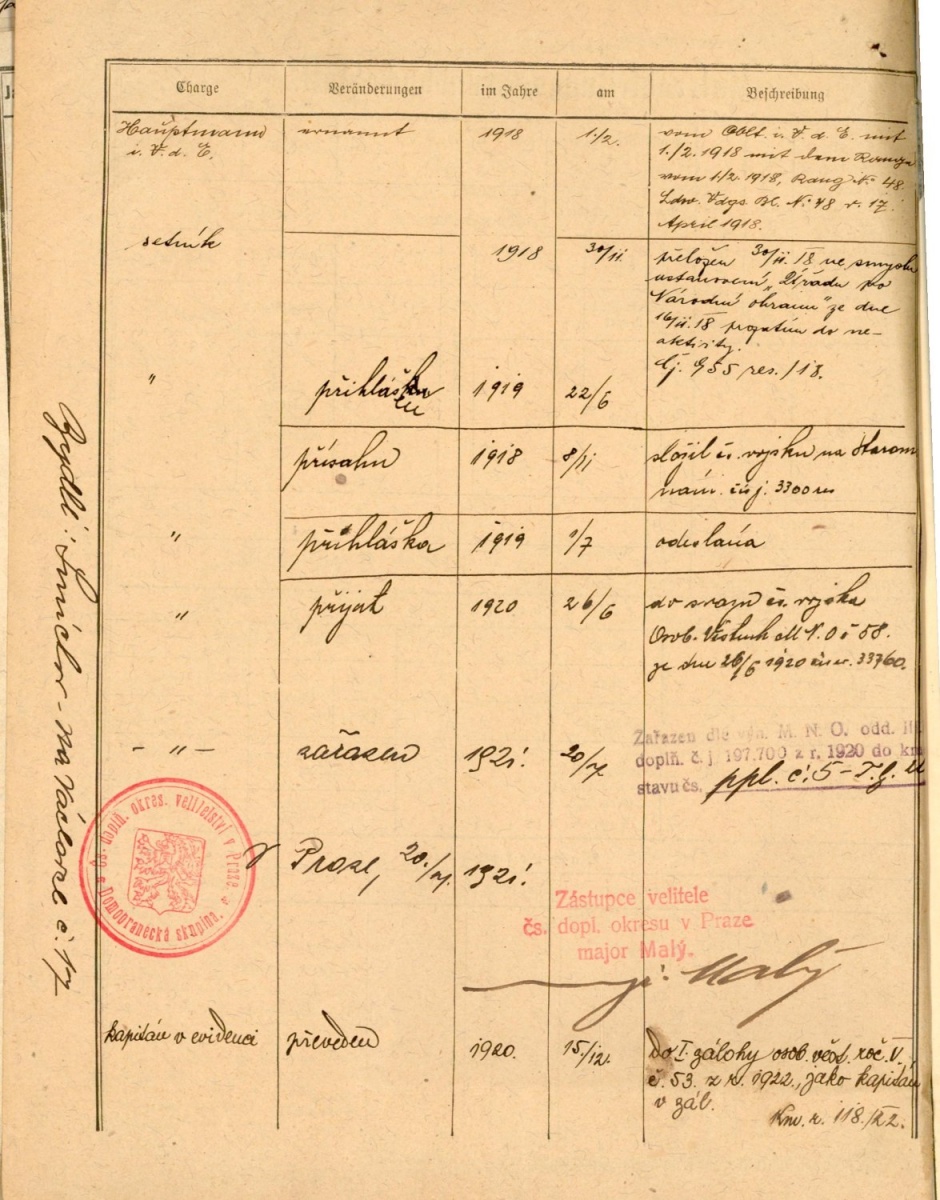 Charge
Veränderungen
im Jahre
am
Beschreibung
Hauptmann
i. V. d. E.
ernannt
1918
1./2.
vom Oblt. i. V. d. E. mit
1./2. 1918 mit dem Range
vom 1./2. 1918, Rang No 48.
Ldw. Vdgs. Bl. No 48 v. 17.
April 1918.
setník
1918
30/11.
přeložen 30/11. 18 ve smyslu
ustanovení „Úřadu pro
Národní obranu" ze dne
16/11. 18 prozatím do ne-
aktivity.
Čj. 955 res./18.
"
přihláška
1919
22/6
přísahu
1918
8/11
složil čs. vojsku na Starom
nám. čís j. 3300 res
"
přihláška
1919
1/7
odeslána
"
přijat
1920
26/6
do svazu čs. vojska
Osob. Věstník M N. O č 58.
ze dne 26/6 1920 čís. 33760.
- " -
zařazen
1921.
20/7
Zařazen dle výn. M. N. O. odd.
doplň. č. j. 197.700 z r. 1920 do km
stavu čs. ppl. č. 5 - T. G. M
V Praze, 20./7. 1921.
Čs. doplň. okres. velitelství v Praze.
Domobranecká skupina.
Zástupce velitele
čs. dopl. okresu v Praze
major Malý.
Malý
kapitán v evidenci
převeden
1920.
15./12.
Do I. zálohy osob. věst. roč. V.
č. 53. z r. 1922., jako kapitán
v zál.
Km. r. 118/22.
Bydlí: Smíchov - Na Václavce č. 17